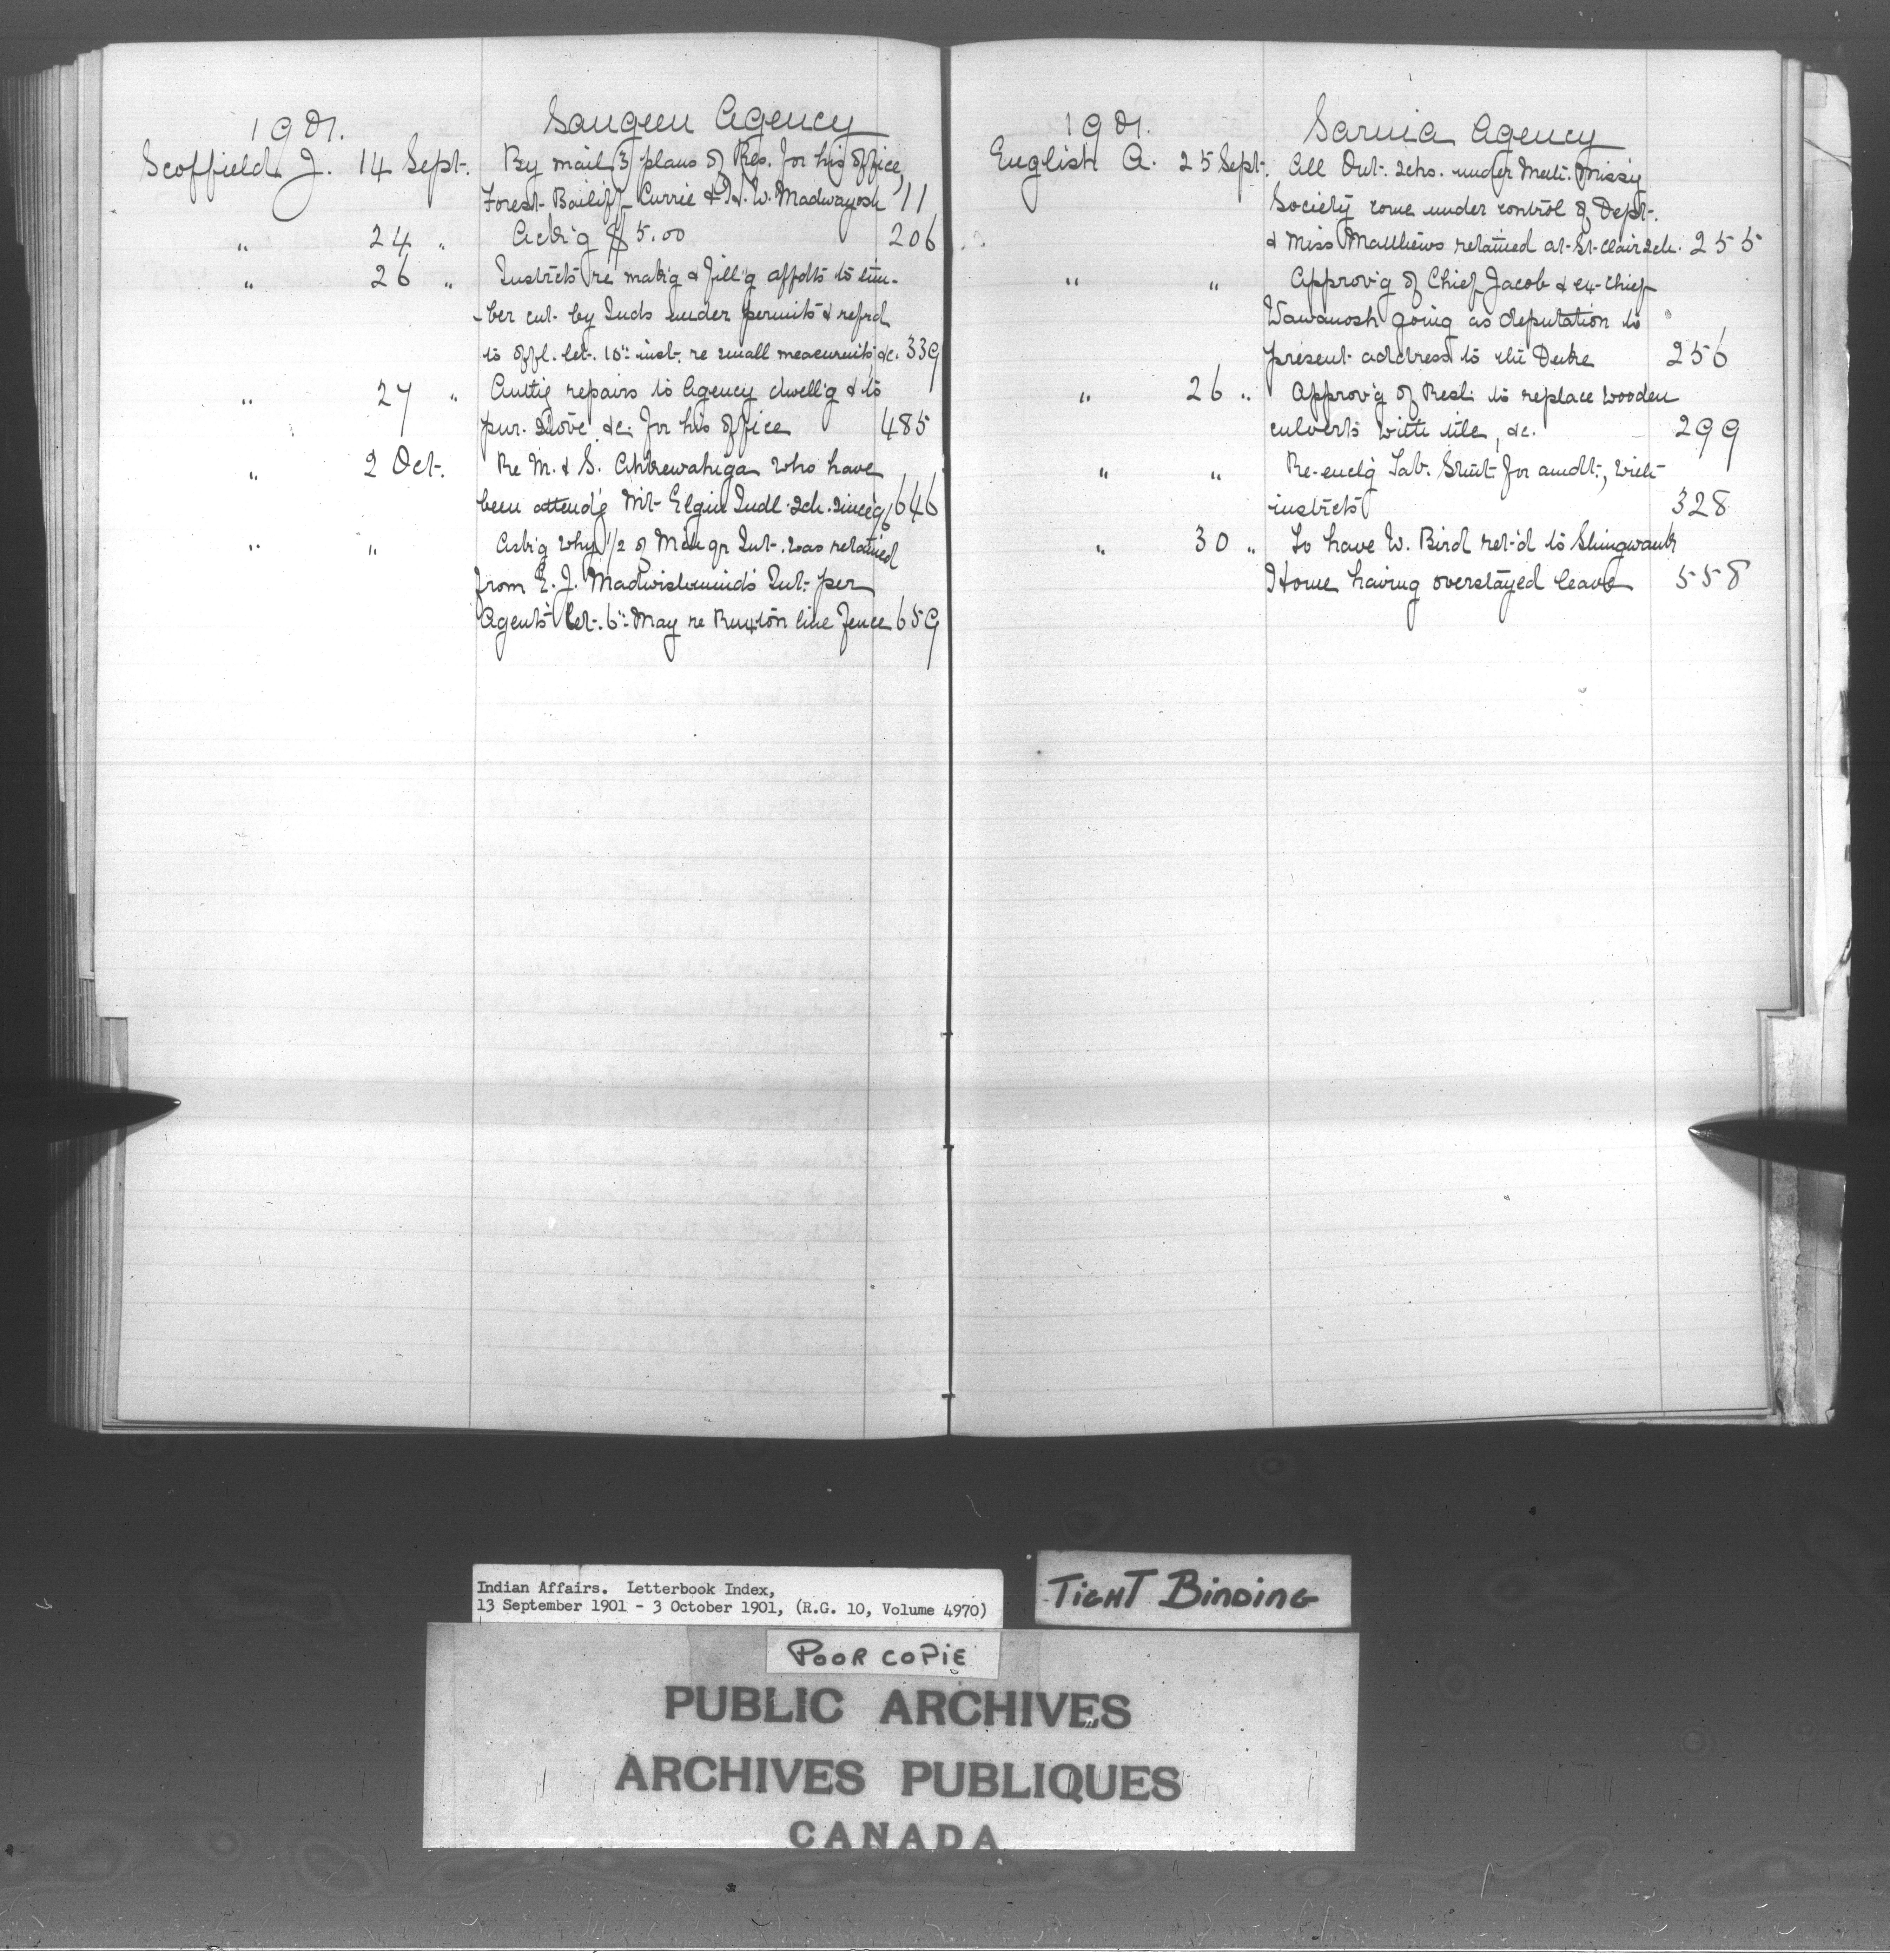 1901. Saugeen Agency
Scoffield J. 14 Sept. By mail 3 plans of Res. for his office,
Forest Bailiff Currie & H. W. Madwayosh 11
" 24 " Ackg $5.00 206
" 26 " Instrcts re makg & fill'g affdts to tim-
-ber cut by Inds under permits & refrd
to offl. let. 10th inst. re small measuremts, &c. 339
" 27 " Authg repairs to Agency dwell'g & to
pur. stove &c. for his office 485
" 2 Oct. Re M. & S. Ahkewahiga who have
been attend'g Mt Elgin Indl. Sch. since 96 646
" " Askg why 1/2 of Int. was retained
from E. J. Int. per
Agents let. 6th May re Ruxton line fence 659
1901. Sarnia Agency
English A. 25 Sept. All Ont. Schs. under Meth. Missy
Society come under control of Dept.
& Miss Matthews retained at St Clair Sch. 255
" " Approv'g of Chief Jacob & ex-Chief
Wawanosh going as deputation to
present address to the Duke 256
" 26 " Approv'g of Resl: to replace wooden
culverts with tile, &c. 299
" " Re-encl'g Tab. Stmt for amdt, with
instrcts 328
" 30 " To have W. Bird ret'd to Shingwauk
Home having overstayed leave 558
Indian Affairs. Letterbook Index,
13 September 1901 - 3 October 1901, (R.G. 10, Volume 4970)
TIGHT BINDING
POOR COPIE
PUBLIC ARCHIVES
ARCHIVES PUBLIQUES
CANADA